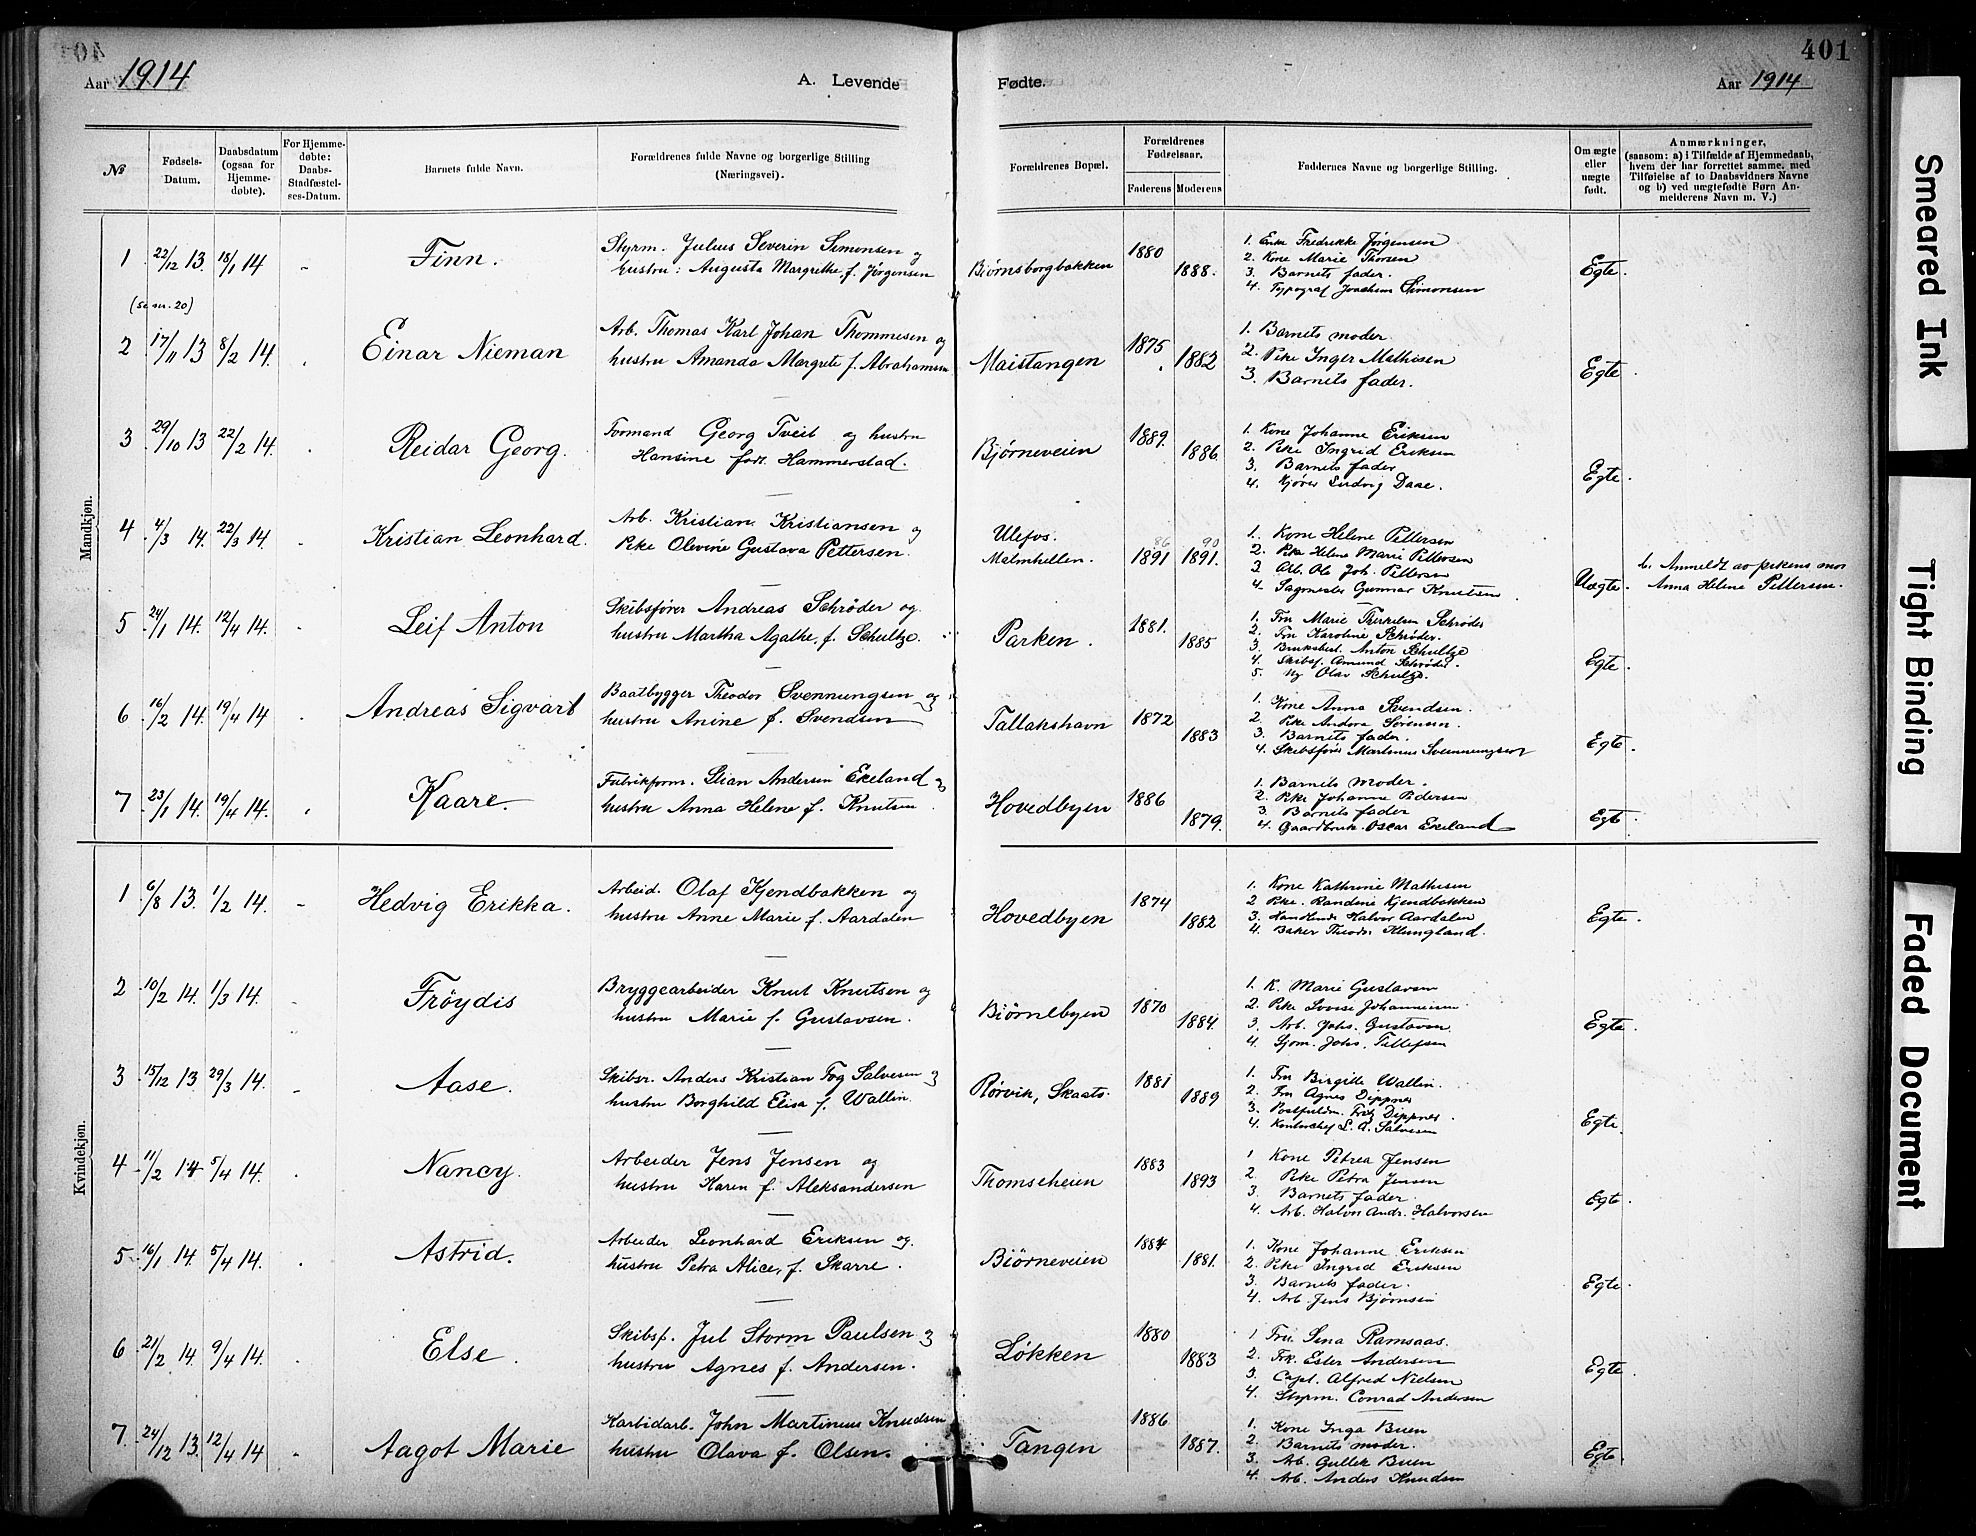 401
Aar 1914
A. Levende
Fødte.
Aar 1914
№
Fødsels-
Datum.
Daabsdatum
(ogsaa for
Hjemme-
døbte).
For Hjemme-
døbte:
Daabs-
Stadfæstel-
ses-Datum.
Barnets fulde Navn.
Forældrenes fulde Navne og borgerlige Stilling
(Næringsvei).
Forældrenes Bopæl.
Forældrenes
Fødselsaar.
Faderens
Moderens
Faddernes Navne og borgerlige Stilling.
Om ægte
eller
uægte
født.
Anmærkninger,
(saasom: a) i Tilfælde af Hjemmedaab,
hvem der har forrettet samme, med
Tilføielse af to Daabsvidners Navne
og b) ved uægtefødte Børn An-
melderens Navn m. V.)
Mandkjøn.
1 22/12 13. 18/1 14 - Finn.
Styrm. Julius Severin Simonsen og
hustru: Augusta Margrethe f. Jørgensen
Bjørnsborgbakken 1880 1888.
1. Enke Fredrikke Jørgensen
2. Kone Marie Thorsen
3. Barnets fader.
4. Typograf Joachim Simonsen
Egte.
(Se nr. 20)
2 17/11 13 8/2 14. Einar Nieman
Arb. Thomas Karl Johan Thommesen og
hustru Amanda Margrete f. Abrahamsen
Maistangen 1875 1882
1. Barnets moder
2. Pike Inger Mathisen
3. Barnets fader.
Egte.
3 29/10 13 22/2 14. Reidar Georg.
Formand Georg Tveit og hustru
Hansine født Hammerstad.
Bjørneveien 1889. 1886.
1. Kone Johanne Eriksen
2. Pike Ingrid Eriksen
3. Barnets fader
4. Kjører Ludvig Daae.
Egte.
4 4/3 14. 22/3 14. Kristian Leonhard.
Arb. Kristian Kristiansen og
Pike Olevine Gustava Pettersen.
Ulefos.
Malmhellen. 86 1891 90 1891.
1. Kone Helene Pettersen
2. Pike Helene Marie Pettersen
3. Arb. Ole Joh. Pettersen
4. Sagmester Gunnar Knutsen.
Uægte.
b. Anmeldt av pikens mor
Anna Helene Pettersen.
5 24/1 14. 12/4 14. Leif Anton
Skibsfører Andreas Schrøder og
hustru Martha Agathe, f. Schultze.
Parken. 1881. 1885
1. Fru Marie Terkelsen Schrøder
2. Fru Karoline Schrøder.
3. Bruksbest. Anton Schultze
4. Skibsf. Amund Schrøder.
5. Ug Olav Schultze.
Egte.
6 16/2 14. 19/4 14 Andreas Sigvart
Baatbygger Theodor Svennungsen og
hustru Anine f. Svendsen
Tallakshavn 1872 1883
1. Kone Anna Svendsen.
2. Pike Andora Sørensen.
3. Barnets fader.
4. Skibsfører Martinus Svennungsen
Egte.
7 23/1 14. 19/4 14. Kaare.
Fabrikform. Stian Andersen Ekeland og
hustru Anna Helene f. Knutsen.
Hovedbyen 1886 1879.
1. Barnets moder.
2. Pike Johanne Pedersen
3. Barnets fader
4. Gaardbruk. Oscar Ekeland
Egte.
Kvindekjøn.
1 6/8 13. 1/2 14. - Hedvig Erikka.
Arbeid. Olaf Kjendbakken og
hustru Anne Marie f. Aardalen
Hovedbyen 1874 1882
1. Kone Kathrine Mathisen
2 Pike. Randine Kjendbakken
3. Halvor Aardalen
4. Baker Theodor Klungland.
Egte.
2 10/2 14. 1/3 14. Frøydis
Bryggearbeider Knut Knutsen og
hustru Marie f. Gustavsen.
Bjørnebyen 1870 1884.
1. K. Marie Gustavsen
2. Pike Lovise Johannesen
3. Arb. Johs. Gustavsen.
4. Sjøm. Johs. Tellefsen
Egte.
3 15/12 13. 29/3 14. Aase.
Skibsr. Anders Kristian Fog Salvesen og
hustru Borghild Elisa f. Wallin.
Rørvik, Skaatø. 1881 1889
1. Fru Birgitte Wallin.
2. Fru Agnes Dippner
3. Postfuldm. Fritz Dippner.
4. Kontorchef L. A. Salvesen
Egte.
4 11/2 14 5/4 14. Nancy.
Arbeider Jens Jensen og
hustru Karen f. Aleksandersen
Thomseheien 1883 1893
1 Kone Petrea Jensen
2. Pike Petra Jensen
3. Barnets fader.
4. Arb. Halvor Andr. Halvorsen
Egte.
5 16/1 14. 5/4 14. Astrid.
Arbeider Leonhard Eriksen og
hustru Petra Alice, f. Skarre.
Bjørneveien 1884 1881.
1. Kone Johanne Eriksen
2. Pike Ingrid Eriksen
3. Barnets fader.
4. Arb. Jens Bjørnsen
Egte.
6 21/2 14. 9/4 14. Else.
Skibsf. Jul Storm Paulsen og
hustru Agnes f. Andersen.
Løkken 1880 1883
1 Fru. Lena Ramsaas.
2. Frk. Ester Andersen
3. Capt. Alfred Nielsen
4. Styrm. Conrad Andersen
Egte.
7. 24/12 13. 12/4 14 Aagot Marie
Karbidarb. John Martinius Knudsen
hustru Olava f. Olsen.
Tangen 1886 1887.
1. Kone Inga Buen
2. Barnets moder.
3. Arb. Gullek Buen
4. Arb. Anders Knudsen
Egte.
Smeared Ink
Tight Binding
Faded Document